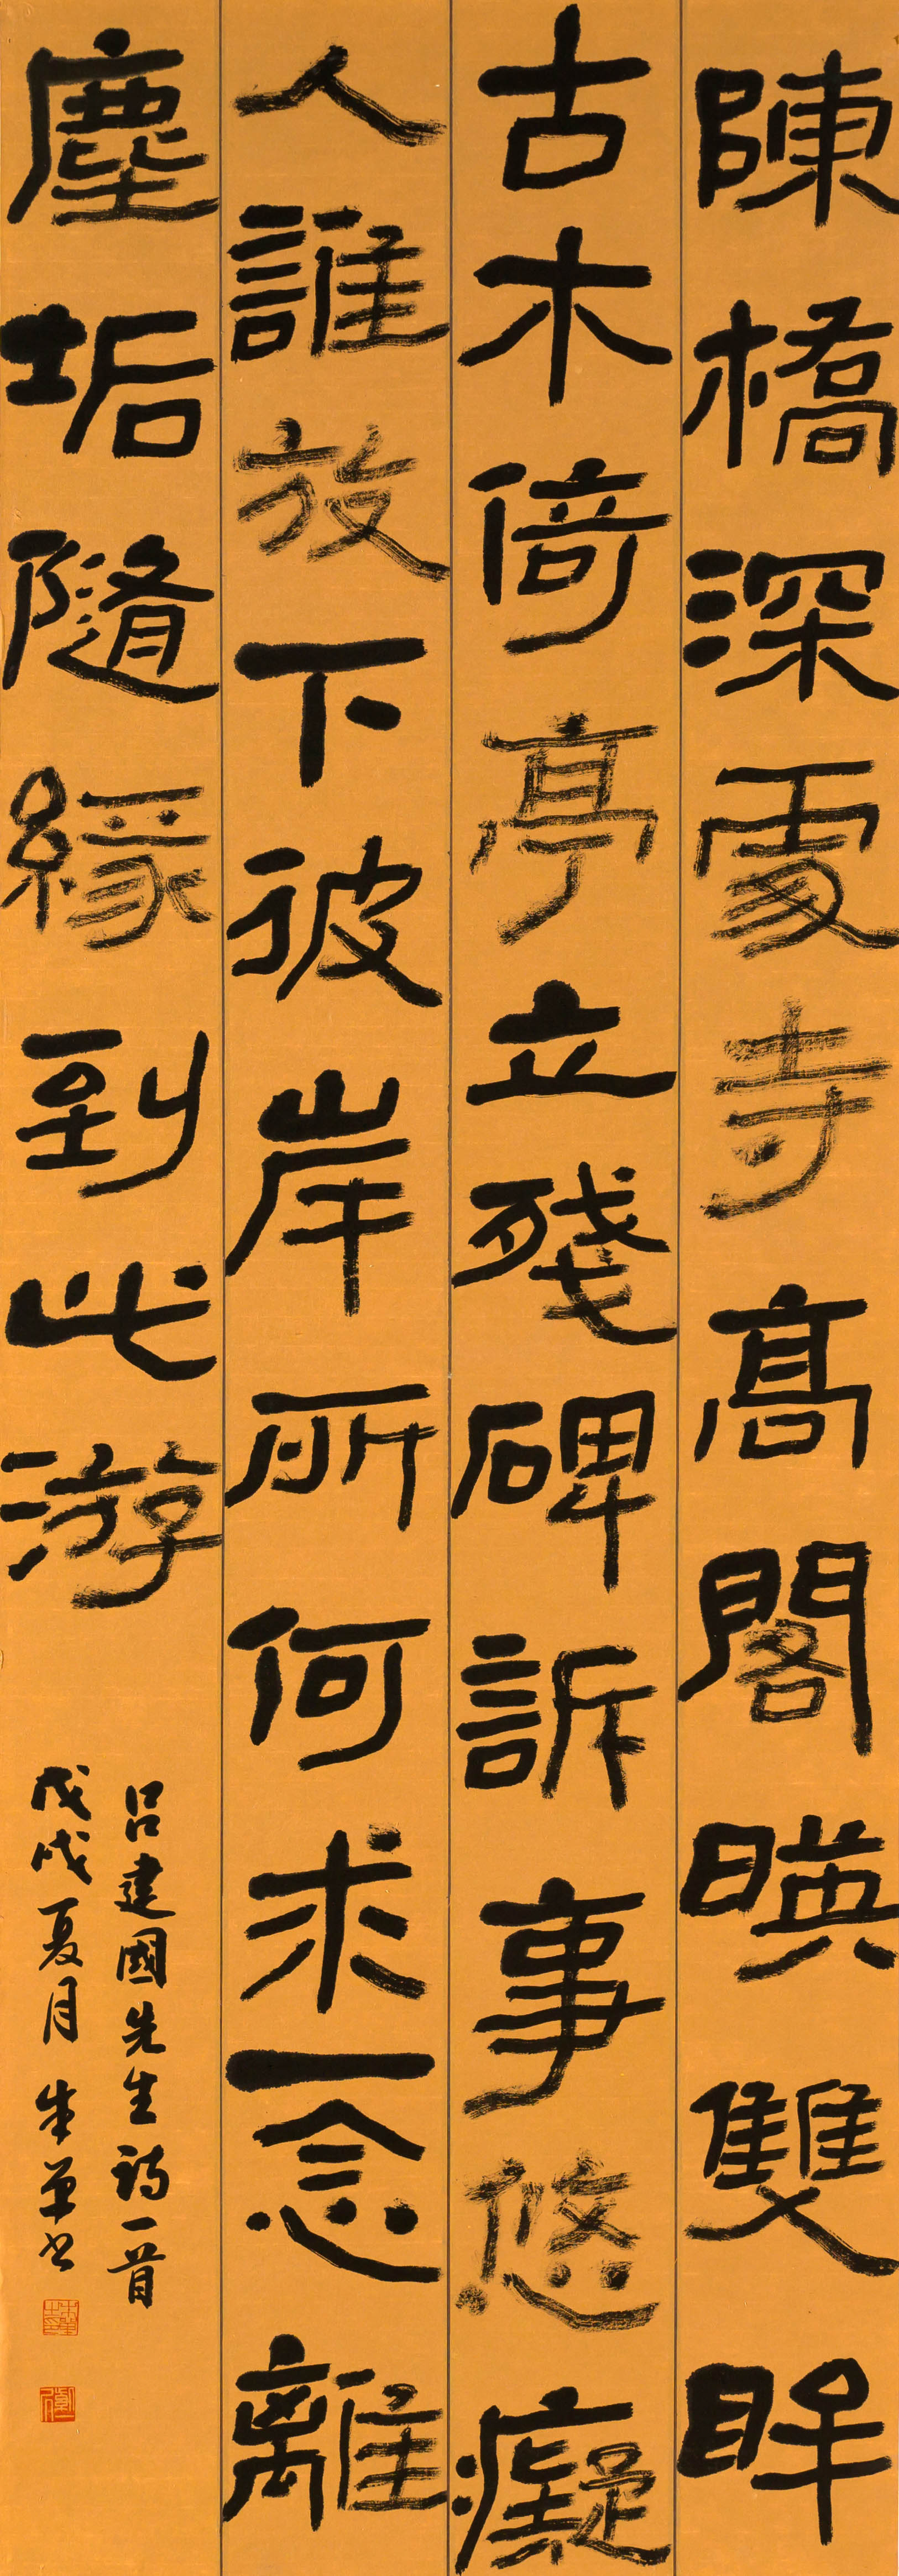 陳橋深處寺高閣暎雙眸
古木倚亭立殘碑訴事悠癡
人誰放下彼岸所何求一念離
塵垢隨緣到此游
呂建國先生詩一首
戊戌夏月朱單書